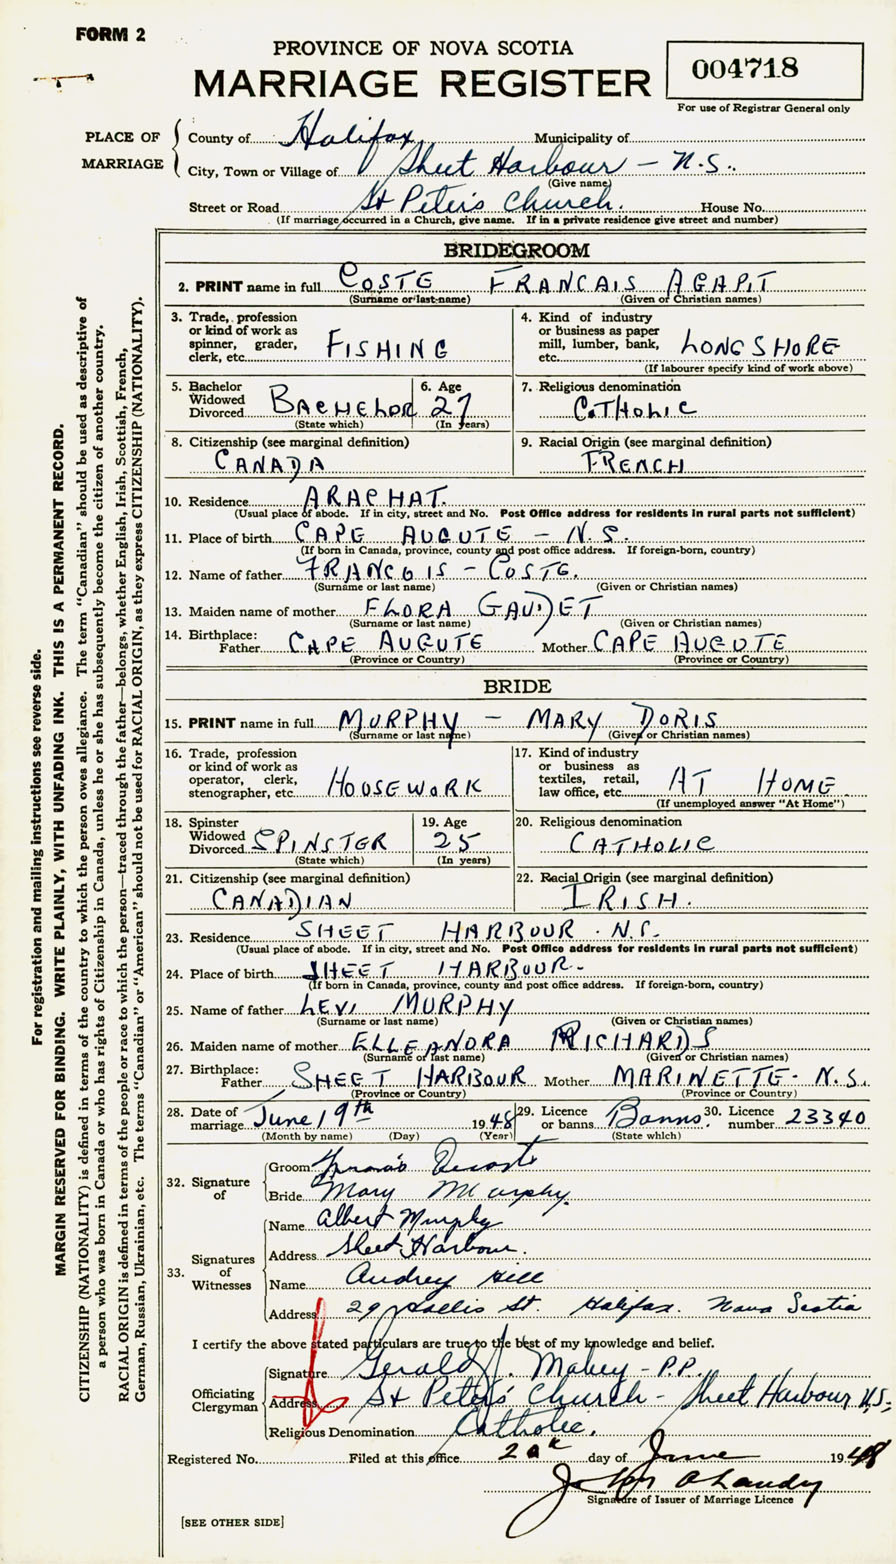 FORM 2
PROVINCE OF NOVA SCOTIA
MARRIAGE REGISTER
004718
For use of Registrar General only
PLACE OF MARRIAGE
County of Halifax Municipality of
City, Town or Village of Sheet Harbour - N.S.
(Give name)
Street or Road St Peter's Church. House No.
(If marriage occurred in a Church, give name. If in a private residence give street and number)
BRIDEGROOM
2. PRINT name in full COSTE FRANCAIS AGAPIT
(Surname or last name) (Given or Christian names)
3. Trade, profession or kind of work as spinner, grader, clerk, etc. FISHING
4. Kind of industry or business as paper mill, lumber, bank, etc. LONGSHORE
(If labourer specify kind of work above)
5. Bachelor Widowed Divorced BACHELOR
(State which)
6. Age 27
(In years)
7. Religious denomination CATHOLIC
8. Citizenship (see marginal definition)
CANADA
9. Racial Origin (see marginal definition)
FRENCH
10. Residence ARACHAT.
(Usual place of abode. If in city, street and No. Post Office address for residents in rural parts not sufficient)
11. Place of birth CAPE AUGUTE - N.S.
(If born in Canada, province, county and post office address. If foreign-born, country)
12. Name of father FRANCOIS - COSTE.
(Surname or last name) (Given or Christian names)
13. Maiden name of mother FLORA GAUDET
(Surname or last name) (Given or Christian names)
14. Birthplace: Father CAPE AUGUTE Mother CAPE AUGUTE
(Province or Country) (Province or Country)
BRIDE
15. PRINT name in full MURPHY - MARY DORIS
(Surname or last name) (Given or Christian names)
16. Trade, profession or kind of work as operator, clerk, stenographer, etc. HOUSEWORK
17. Kind of industry or business as textiles, retail, law office, etc. AT HOME
(If unemployed answer "At Home")
18. Spinster Widowed Divorced SPINSTER
(State which)
19. Age 25
(In years)
20. Religious denomination
CATHOLIC
21. Citizenship (see marginal definition)
CANADIAN
22. Racial Origin (see marginal definition)
IRISH.
23. Residence SHEET HARBOUR. N.S.
(Usual place of abode. If in city, street and No. Post Office address for residents in rural parts not sufficient)
24. Place of birth SHEET HARBOUR-
(If born in Canada, province, county and post office address. If foreign-born, country)
25. Name of father LEVI MURPHY
(Surname or last name) (Given or Christian names)
26. Maiden name of mother ELLEANORA RICHARDS
(Surname or last name) (Given or Christian names)
27. Birthplace: Father SHEET HARBOUR Mother MARINETTE- N.S.
(Province or Country) (Province or Country)
28. Date of marriage June 19th 1948
(Month by name) (Day) (Year)
29. Licence or banns Banns.
(State which)
30. Licence number 23340
32. Signature of
Groom Decoste
Bride Mary Murphy.
33. Signatures of Witnesses
Name Albert Murphy
Address Sheet Harbour.
Name Audrey Hill
Address 29 Hollis St. Halifax. Nova Scotia
I certify the above stated particulars are true to the best of my knowledge and belief.
Officiating Clergyman
Signature Gerald J. Mahey - P.P.
Address St Peter's Church - Sheet Harbour N.S.
Religious Denomination Catholic.
Registered No. Filed at this office day of June 1948
Signature of Issuer of Marriage Licence
[SEE OTHER SIDE]
For registration and mailing instructions see reverse side.
MARGIN RESERVED FOR BINDING. WRITE PLAINLY, WITH UNFADING INK. THIS IS A PERMANENT RECORD.
CITIZENSHIP (NATIONALITY) is defined in terms of the country to which the person owes allegiance. The term "Canadian" should be used as descriptive of
a person who was born in Canada or who has rights of Citizenship in Canada, unless he or she has subsequently become the citizen of another country.
RACIAL ORIGIN is defined in terms of the people or race to which the person—traced through the father—belongs, whether English, Irish, Scottish, French,
German, Russian, Ukrainian, etc. The terms "Canadian" or "American" should not be used for RACIAL ORIGIN, as they express CITIZENSHIP (NATIONALITY).